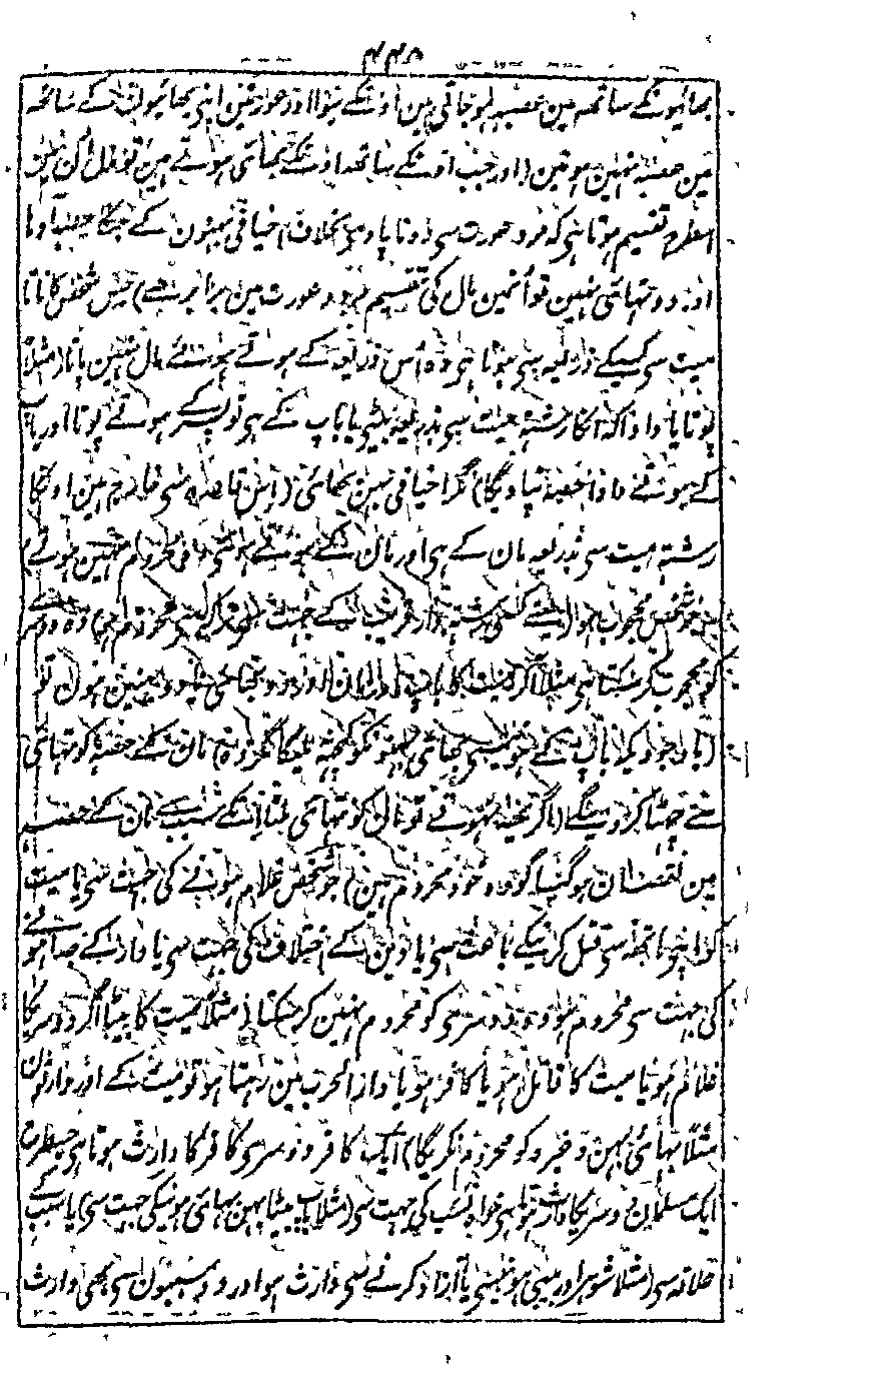 ۴۴۸
بھائیونکے ساتھہ مین عصبہ ہو جاتی ہین اونکے سوا اور عورتین اپنی بھائیونکے ساتھہ
مین عصبہ نہین ہوتین (اور جب اونکے ساتھہ اونکے بھائی ہوتے ہین تو مال اُن مین
اسطرح تقسیم ہوتا ہی کہ مرد عورت سی دونا پاوے بخلاف اخیافی بہنون کے جنکا حصہ
اور دو تہائی ہین تو اُنمین مال کی تقسیم مرد و عورت مین برابر ہے) جس شخص کا ناتا
میت سی کسیکے ذریعہ سی ہوتا ہی وہ اُس ذریعہ کے ہوتے ہوئے مال نہین پاتا (مثلاً
پوتا یا دادا کہ انکا رشتہ میت سی بذریعہ بیٹی یا باپ کے ہی تو پسر کے ہوتے پوتا اور باپ
کے ہوتے دادا حصہ نپاویگا) مگر اخیافی بہن بھائی (اِس قاعدہ سی خارج ہین اونکا
رشتہ میت سی بذریعہ مان کے ہی اور مان کے ہوتے ہوئے وہ محروم نہین ہوتے)
جو شخص محجوب ہو (یعنے کسی رشتہ دار قریب کے جہت سی محروم ہو) وہ دوسرے
کو محجوب کر سکتا ہی مثلاً اگر میت کا باپ اور مان اور دو بھائی ہون تو
(باوجودیکہ باپ کے ہوتے بھائی بہنونکو کچھہ نملیگا مگر وہ مان کے حصہ کو تہائی
سے چھٹا کر دینگے (اگر یہ نہوتے تو مان کو تہائی ملتا انکے سبب سے مان کے حصہ
مین نقصان ہو گیا گو وہ خود محروم ہین) جو شخص غلام ہونے کی جہت سی یا میت
کو اپنی ہاتھہ سی قتل کرنیکے باعث سی یا دین کے اختلاف کی جہت سی یا دار کے جدا ہونے
کی جہت سی محروم ہو وہ دوسری کو محروم نہین کر سکتا (مثلاً میت کا بیٹا اگر دوسریکا
غلام ہو یا میت کا قاتل ہو یا کافر ہو یا دار الحرب مین رہتا ہو تو میت کے اور وارثون
مثلاً بہائی بہن وغیرہ کو محروم نکریگا) ایک کافر دوسری کافر کا وارث ہوتا ہی جسطرح
ایک مسلمان دوسریکا وارث ہوتا ہی خواہ نسب کی جہت سی (مثلاً باپ بیٹا بہن بہائی ہونیکی جہت سی) یا سبب کے
علاقہ سی (مثلاً شوہر اور بیبی ہونیسی یا آزاد کرنے سی وارث ہو اور دو سببون سی بھی وارث